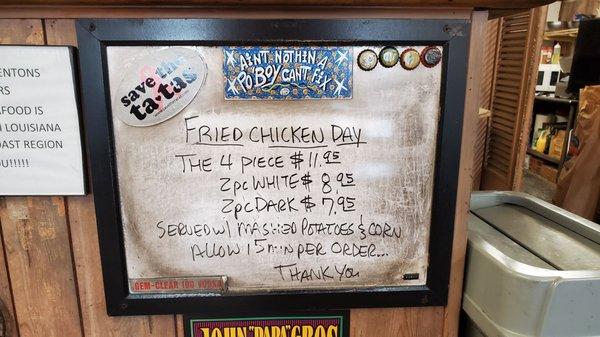 ENTONS
RS
AFOOD IS
LOUISIANA
OAST REGION
U!!!!!
save the
ta-tas
AIN'T NOTHIN A
PO'BOY CAN'T FIX
FRIED CHICKEN DAY
THE 4 PIECE $11.95
2PC WHITE $8.95
2PC DARK $7.95
SERVED W/ MASHED POTATOES & CORN
ALLOW 15 MIN PER ORDER...
THANK YOU
GEM-CLEAR 100 VODKA
JOHN "PAPA" GROS